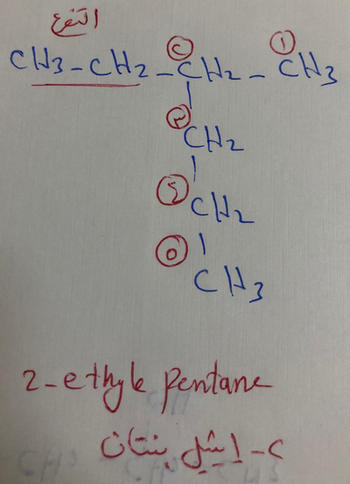 التفرع
CH3-CH2-CH2-CH3
CH2
CH2
CH3
١
٢
٣
٤
٥
2-ethyle pentane
٢-ايثيل بنتان